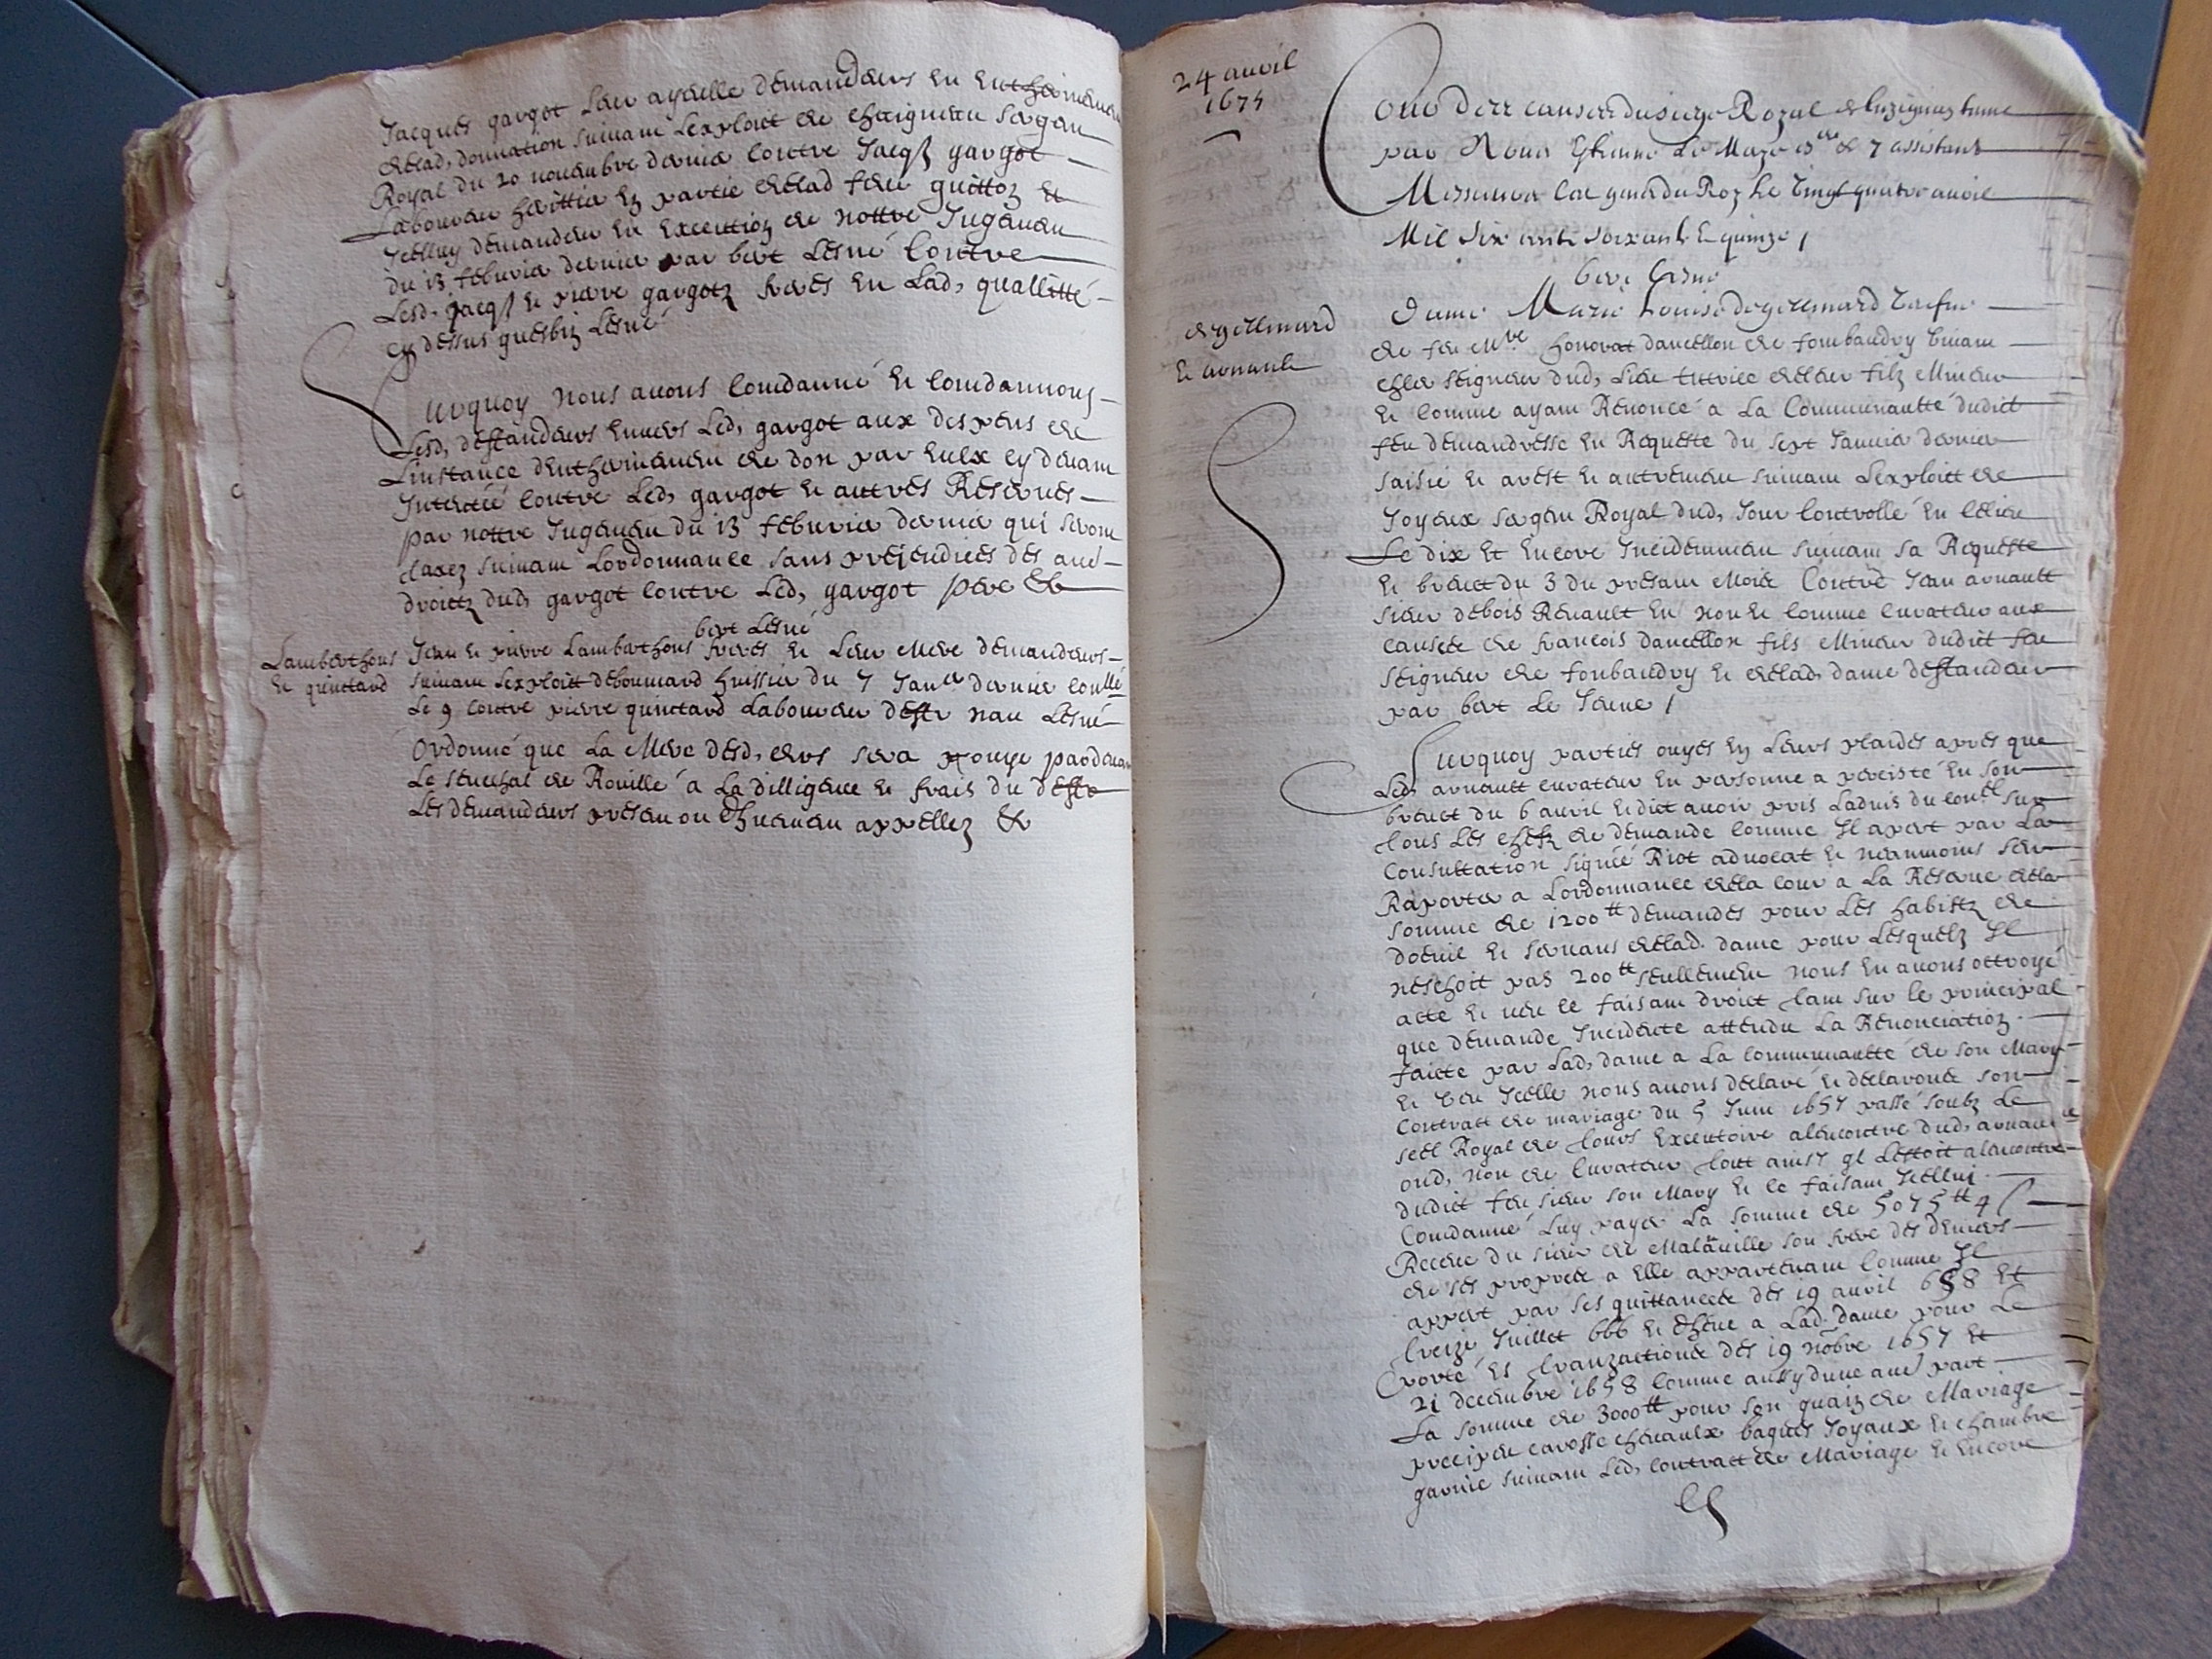 Jacques gargot Leur ayeulle demandeurs en entherinement
de lad, donnation suivant Lexploict de chaigneau sergent
Royal du 20 novembre dernier contre Jacqs gargot
Laboureur heritier en partie de lad feue guitton et
Icelluy demandeur en execution de nottre Jugement
du 13 febvrier dernier par bert Lesné contre
Lesd, Jacqs et pierre gargotz freres en Lad, quallitté
cy dessus guesbin Lesné
Surquoy nous avons Comdanné et Comdannons
Lesd, deffandeurs envers Led, gargot aux despens de
Linstance dentherinement de don par eulx cy devant
Intentée contre Led, gargot et autres Reservés
par nottre Jugement du 13 febvrier dernier qui seront
taxez suivant Lordonnance sans prejeudices des aud
droictz dud, gargot contre Led, gargot pere &c
bert Lesné
Lamberthons
et quintard
Jean et pierre Lamberthons freres et Leur Mere demandeurs
suivant Lexploict de boumard huissier du 7 Janer dernier coullé
Le 9 contre pierre quintard Laboureur deffr nau Lesné
Ordonné que La Mere desd, drs sera ouye pardevant
Le senechal de Rouillé a La dilligence et frais du deffr
Les demandeurs present ou dhuement appellez &c
24 avril
1675
Cour des causes du siege Royal de luzignan tenue
par Nous Estienne Le Maye & 7 assistant
Messieurs les gens du Roy Le Vingt quatre avril
Mil six cents soixante et quinze /
bert Lesné
de gillemard
et arnault
Dame Marie Louise de gillemard Vefve
de feu Mre honorat dancellon de fombaudry Vivant
cher seigneur dud, Lieu tuttrice de Leur filz Mineur
et comme ayant Renoncé a La Communautté dudict
feu demandresse en Requeste du sept Janvier dernier
saisie et arest et autrement suivant Lexploict de
Joyeux sergent Royal dud, Jour controllé en ce lieu
Le dix et encore Incidemment suivant sa Requeste
et brevet du 3 du presant Mois Contre Jean arnault
sieur de bois Renault en non et comme curateur aux
causes de francois dancellon fils Mineur dudict feu
seigneur de fonbaudry et de lad, dame deffandeur
par bert Le Jeune /
Surquoy parties ouyes en Leurs plaides apres que
Led, arnault curateur en personne a persisté en son
brevet du 6 avril et dict avoir pris Ladvis du conel sur
tous Les chefz de demande comme Il apert par La
Consultation signée Riot advocat et neanmoins sen
Raporter a Lordonnance de la cour a La Reserve de la
somme de 1200 tt demandés pour Les habistz de
doeuil et servans de lad. dame pour Lesquelz Il
neschoit pas 200 tt seullement nous en avons ottroyé
acte et en ce faisant droict tant sur le principal
que demande Incidente attendu La Renonciation
faicte par Lad, dame a La communautté de son Mary
et Veu Icelle nous avons declaré et declarons son
Contratt de mariage du 5 Juin 1657 passé soubz Le
seel Royal de tours Executoire alencontre dud, arnault
oud, non de Curateur tout ainsy ql Lestoit alencontre
dudict feu sieur son Mary et ce faisant Icelluy
Comdanné Luy payer La somme de 5075 tt 4 s
Receue du sieur de Malaville son frere des deniers
de ses propres a Elle appartenant Comme Il
appert par ses quittances des 19 avril 658 et
treize Juillet 666 et dheue a Lad. dame pour Le
porté es tranzactions des 19 nobre 1657 et
21 decembre 1658 Comme aussy dune aud part
La somme de 3000 tt pour son guain de Mariage
precipeu carosse chevaulx bagues Joyaux et chambre
garnie suivant Led, contratt de Mariage et Encore